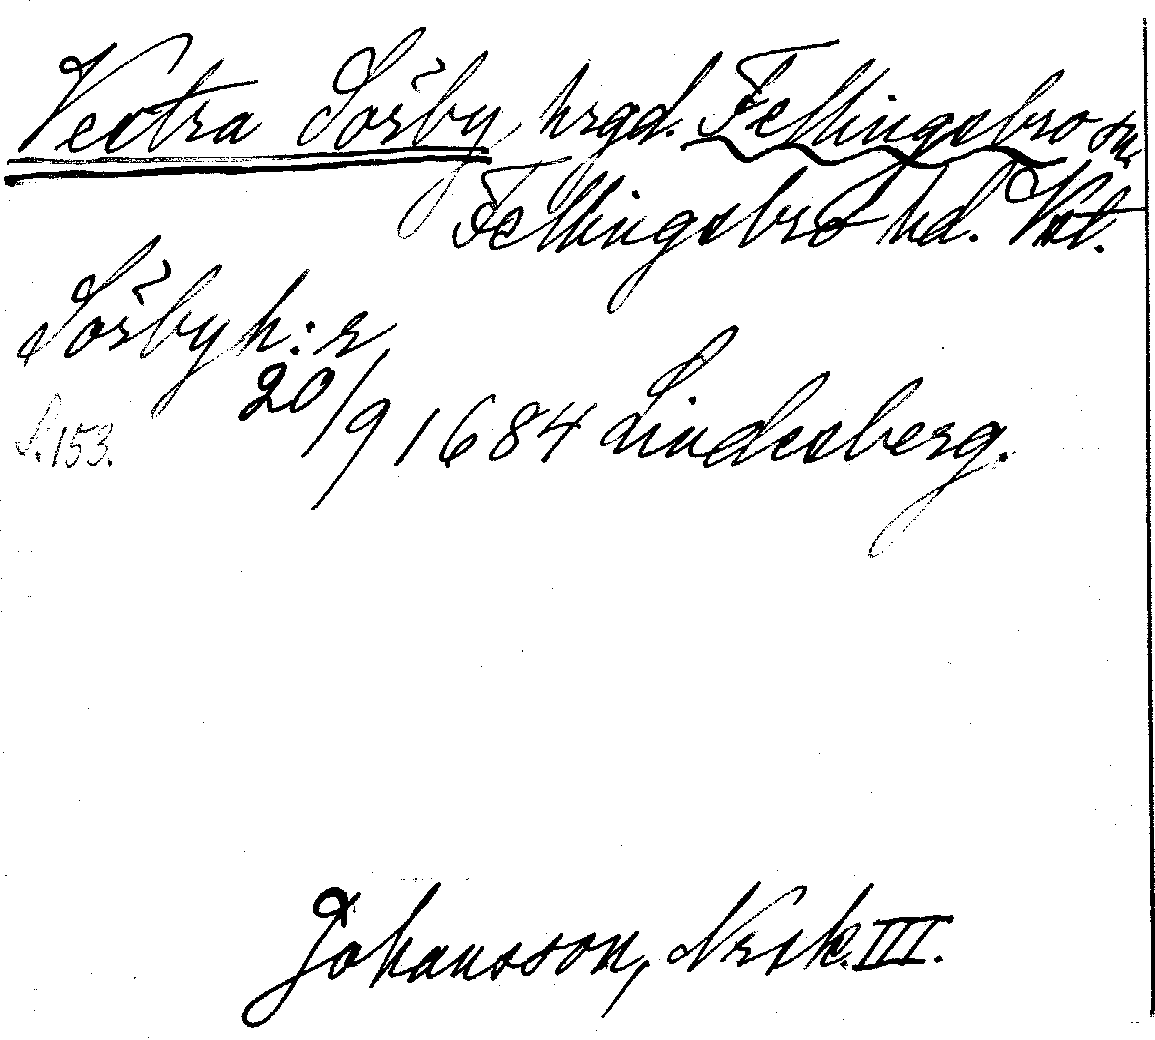 Västra Sörby hrgd. Fellingsbro sn.
Fellingsbro hd. Vstl.
Sörby h:r
20/9 1684 Lindesberg.
S. 153.
Johansson, Norask. III.